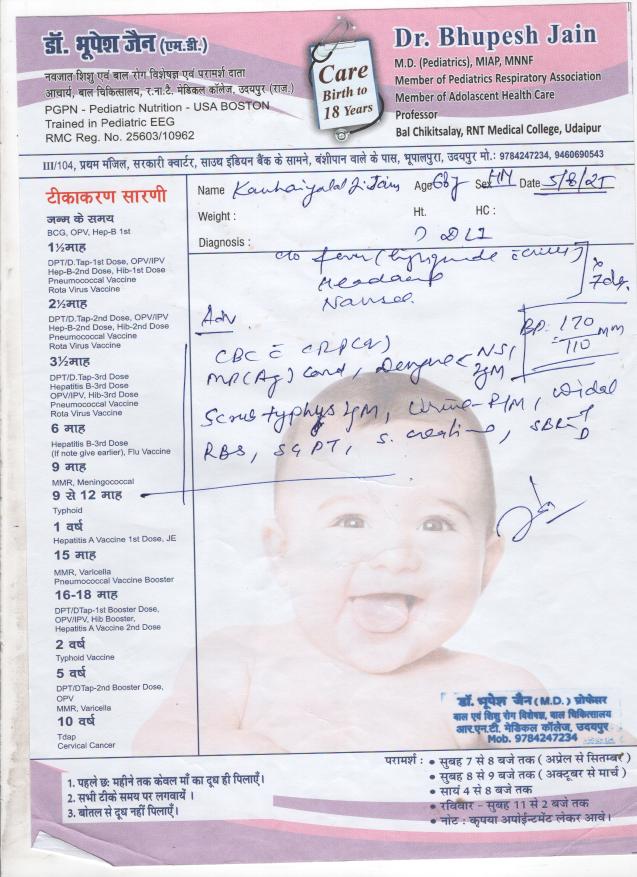 डॉ. भूपेश जैन (एम.डी.)
नवजात शिशु एवं बाल रोग विशेषज्ञ एवं परामर्श दाता
आचार्य, बाल चिकित्सालय, र.ना.टै. मेडिकल कॉलेज, उदयपुर (राज.)
PGPN - Pediatric Nutrition - USA BOSTON
Trained in Pediatric EEG
RMC Reg. No. 25603/10962
Care
Birth to
18 Years
Dr. Bhupesh Jain
M.D. (Pediatrics), MIAP, MNNF
Member of Pediatrics Respiratory Association
Member of Adolascent Health Care
Professor
Bal Chikitsalay, RNT Medical College, Udaipur
III/104, प्रथम मंजिल, सरकारी क्वार्टर, साउथ इंडियन बैंक के सामने, बंशीपान वाले के पास, भूपालपुरा, उदयपुर मो.: 9784247234, 9460690543
टीकाकरण सारणी
जन्म के समय
BCG, OPV, Hep-B 1st
1½माह
DPT/D.Tap-1st Dose, OPV/IPV
Hep-B-2nd Dose, Hib-1st Dose
Pneumococcal Vaccine
Rota Virus Vaccine
2½माह
DPT/D.Tap-2nd Dose, OPV/IPV
Hep-B-2nd Dose, Hib-2nd Dose
Pneumococcal Vaccine
Rota Virus Vaccine
3½माह
DPT/D.Tap-3rd Dose
Hepatitis B-3rd Dose
OPV/IPV, Hib-3rd Dose
Pneumococcal Vaccine
Rota Virus Vaccine
6 माह
Hepatitis B-3rd Dose
(If note give earlier), Flu Vaccine
9 माह
MMR, Meningococcal
9 से 12 माह
Typhoid
1 वर्ष
Hepatitis A Vaccine 1st Dose, JE
15 माह
MMR, Varicella
Pneumococcal Vaccine Booster
16-18 माह
DPT/DTap-1st Booster Dose,
OPV/IPV, Hib Booster,
Hepatitis A Vaccine 2nd Dose
2 वर्ष
Typhoid Vaccine
5 वर्ष
DPT/DTap-2nd Booster Dose,
OPV
MMR, Varicella
10 वर्ष
Tdap
Cervical Cancer
Name Kanhaiyalal Ji Jain Age 68y Sex Date 5/8/25
Weight : Ht. HC :
Diagnosis :
c/o fever
Headache
Nausea
x 7 days
Adv
BP: 170
110 mm
CBC c CRP(Q)
MP(Ag) Card, Dengue < NS1
IgM
Scrub typhus IgM, Urine-R/M, Widal
RBS, SGPT, S. creatinine,
डॉ. भूपेश जैन (M.D.) प्रोफेसर
बाल एवं शिशु रोग विशेषज्ञ, बाल चिकित्सालय
आर.एन.टी. मेडिकल कॉलेज, उदयपुर
Mob. 9784247234
1. पहले छ: महीने तक केवल माँ का दूध ही पिलाएँ।
2. सभी टीके समय पर लगवायें ।
3. बोतल से दूध नहीं पिलाएँ।
परामर्श : • सुबह 7 से 8 बजे तक ( अप्रेल से सितम्बर )
• सुबह 8 से 9 बजे तक ( अक्टूबर से मार्च )
• सायं 4 से 8 बजे तक
• रविवार - सुबह 11 से 2 बजे तक
• नोट : कृपया अपोईन्टमेंट लेकर आवे।